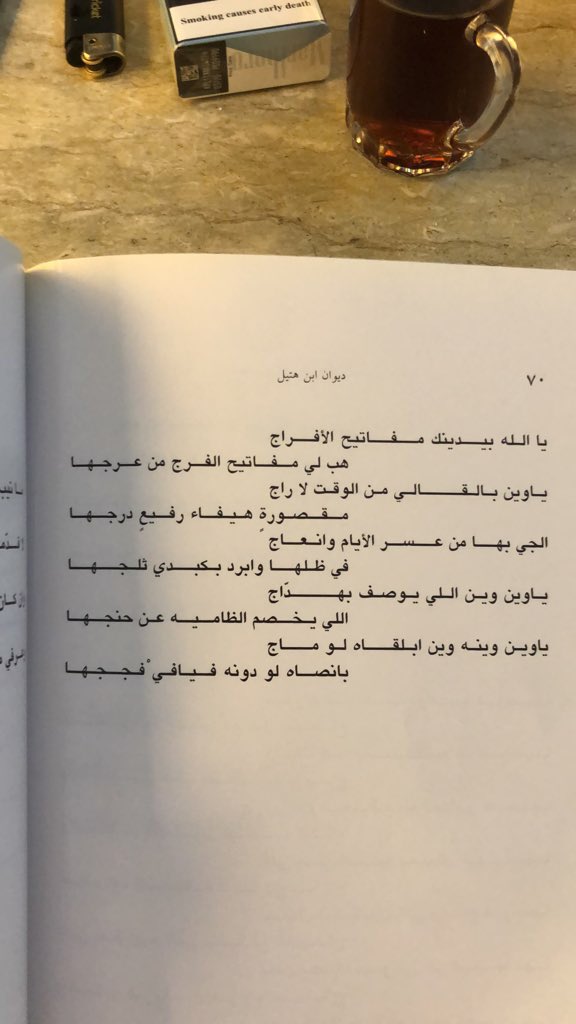 cricket
Smoking causes early death
Marlboro
ديوان ابن هتيل
٧٠
يا الله بيدينك مفاتيح الأفراج
هب لي مفاتيح الفرج من عرجها
ياوين بالقالي من الوقت لا راج
مقصورةٍ هيفاء رفيعٍ درجها
الجي بها من عسر الأيام وانعاج
في ظلها وابرد بكبدي ثلجها
ياوين وين اللي يوصف بهدّاج
اللي يخصم الظاميه عن حنجها
ياوين وينه وين ابلقاه لو ماج
بانصاه لو دونه فيافيْ فججها